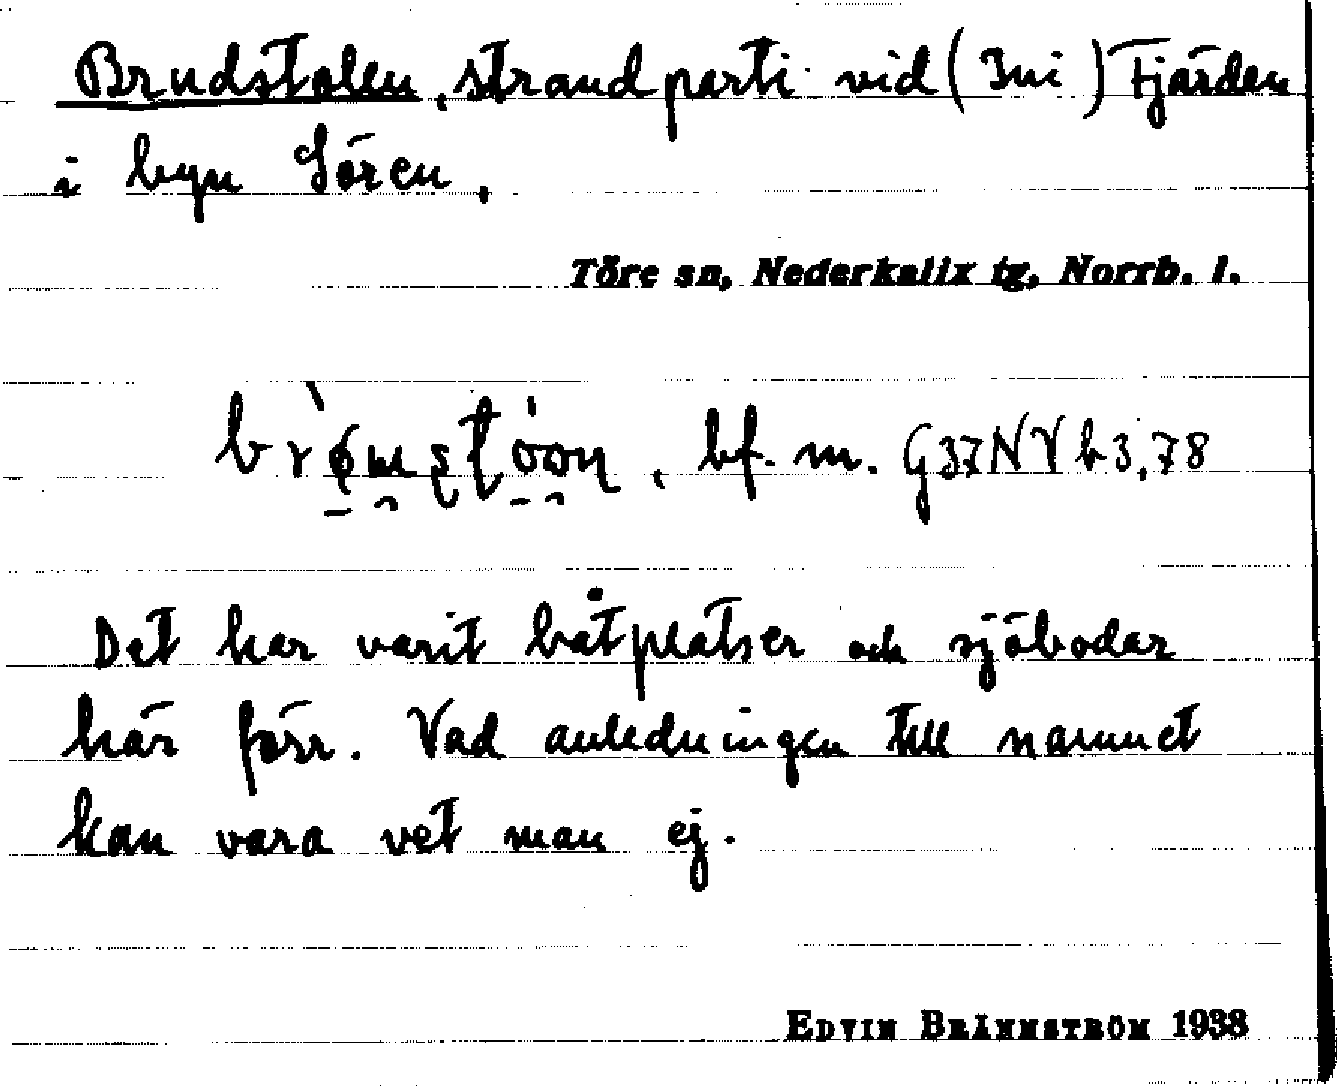 Brudstolen, strandparti vid (Ini) Fjärden
i byn Sören.
Töre sn, Nederkalix tg, Norrb. l.
bf. m. G37NVb3,78
Det har varit båtplatser och sjöbodar
här förr. Vad anledningen till namnet
kan vara vet man ej.
EDVIN BRÄNNSTRÖM 1938